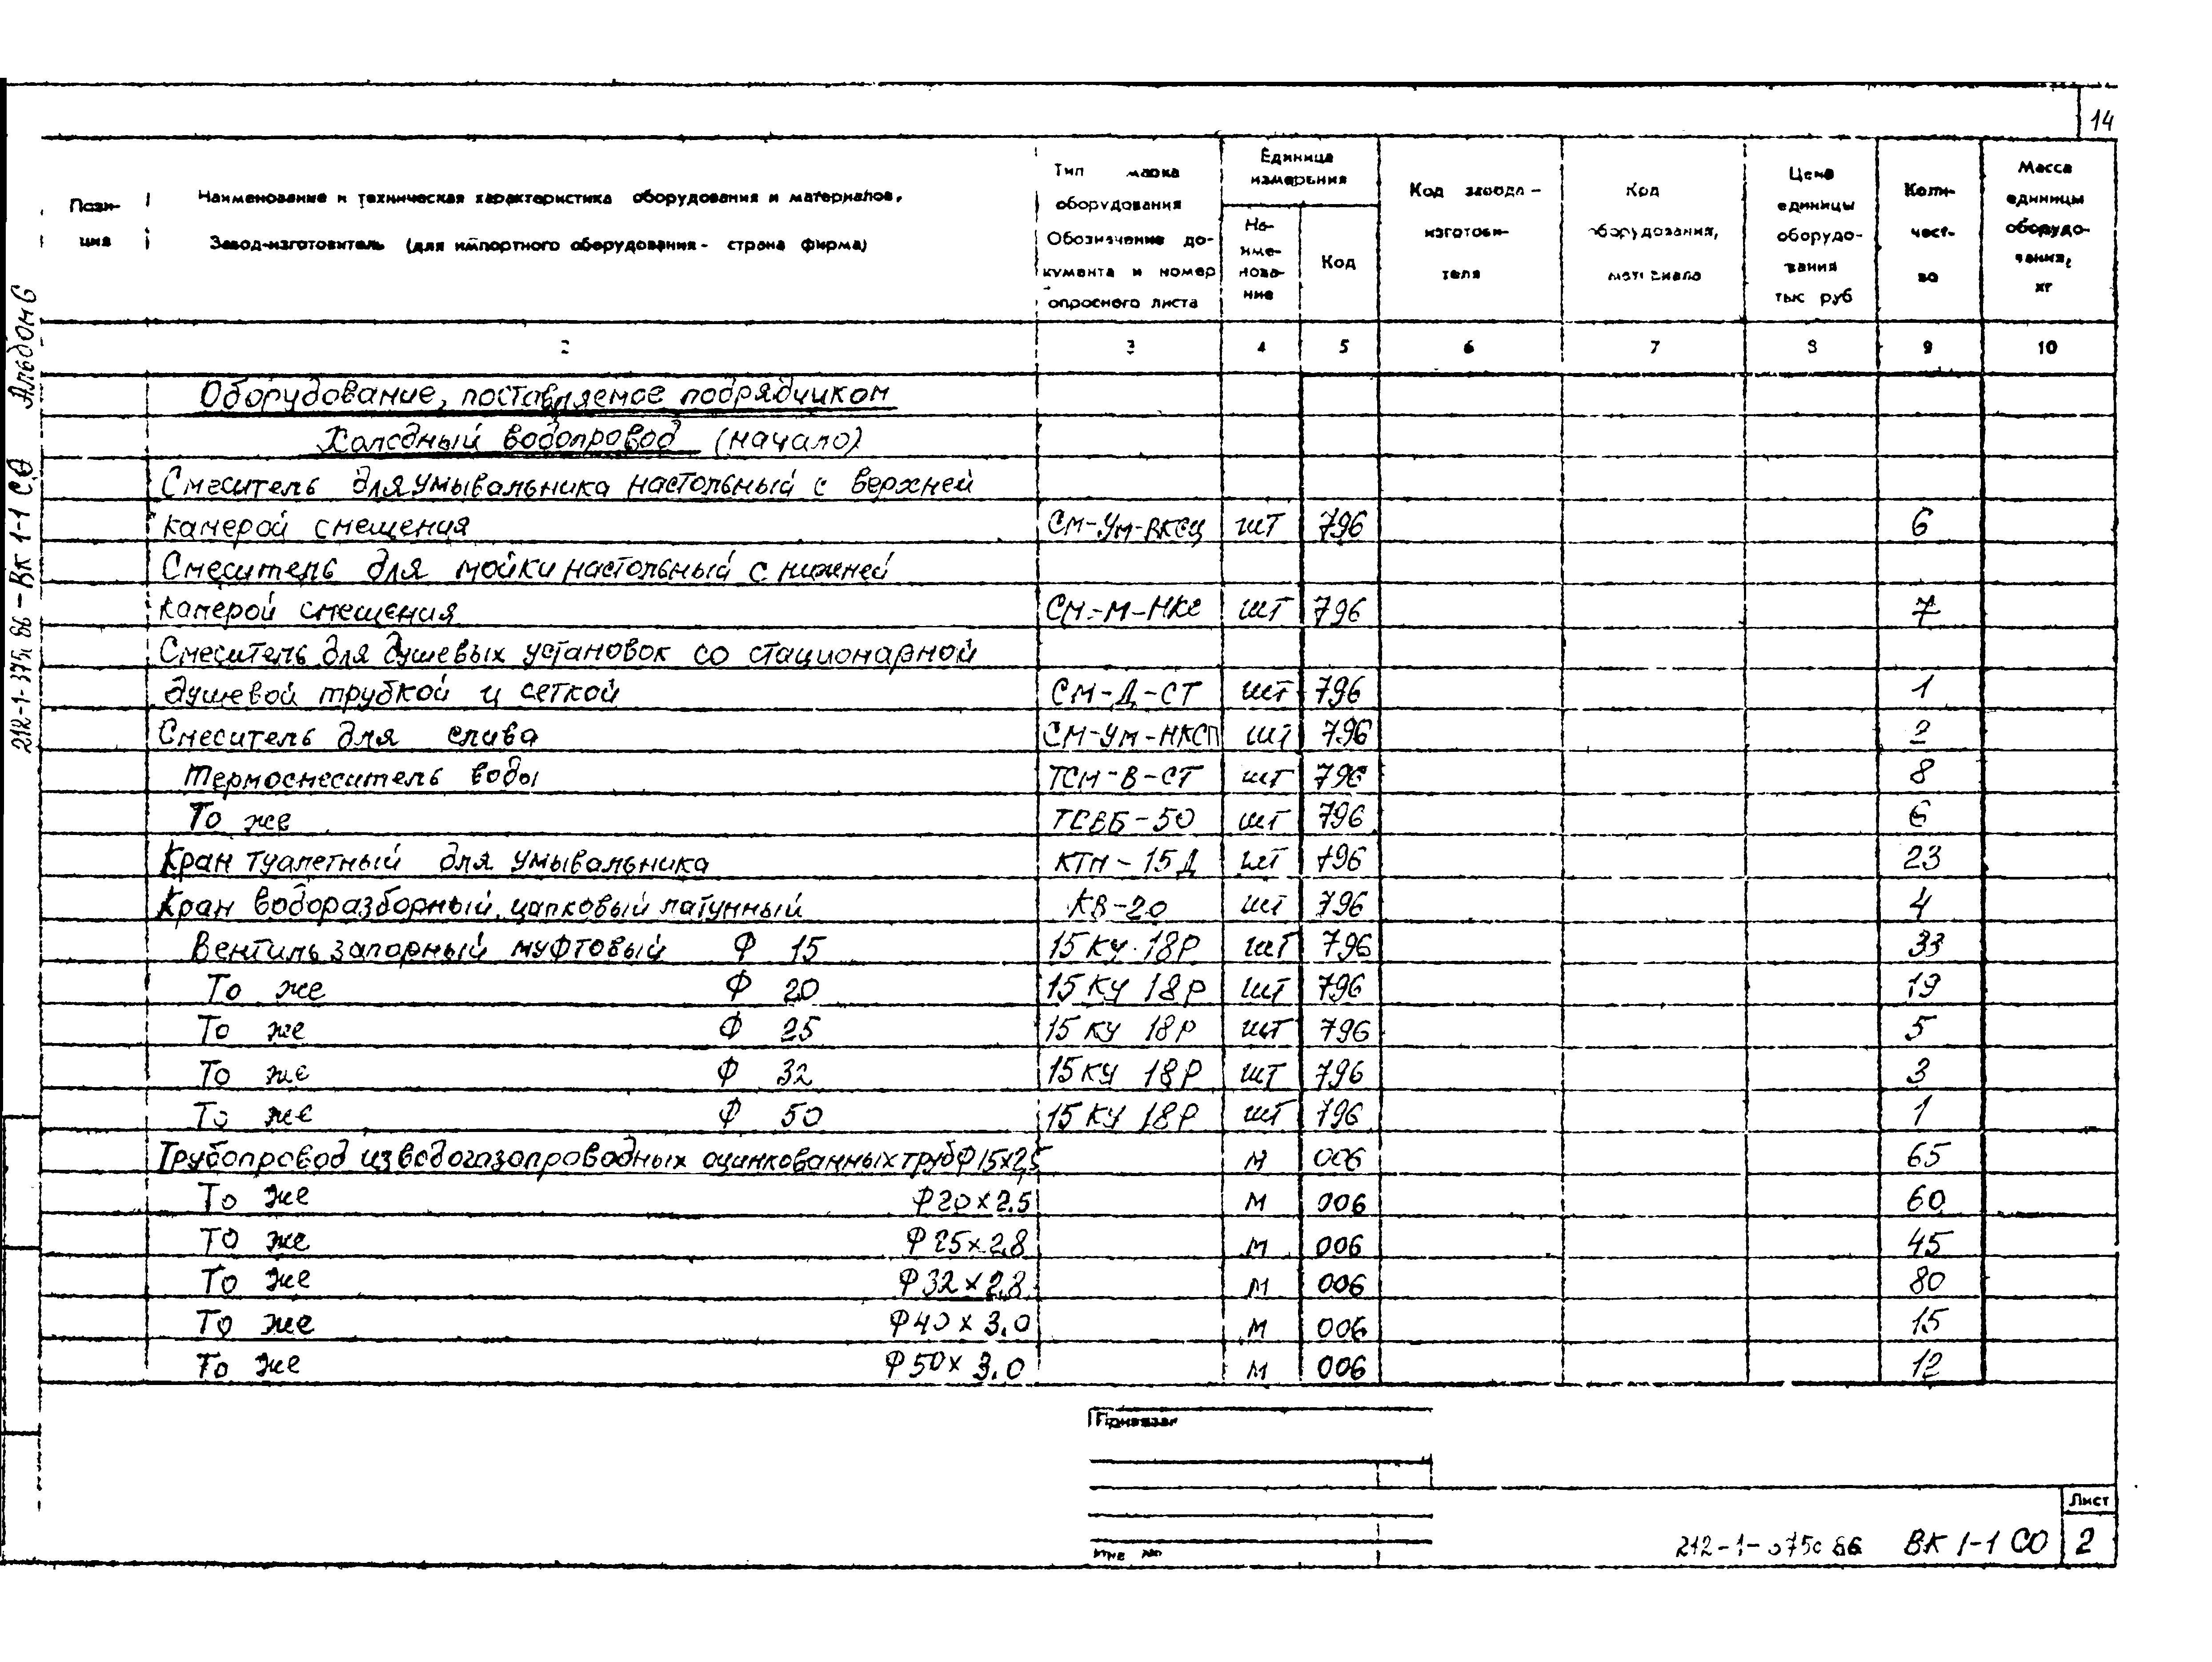 14
Пози-
ция
Наименование и техническая характеристика оборудования и материалов,
Завод-изготовитель (для импортного оборудования - страна фирма)
Тип марка
оборудования
Обозначение до-
кумента и номер
опросного листа
Единица
измерения
На-
име-
нова-
ние
Код
Код завода-
изготови-
теля
Код
оборудования,
материала
Цена
единицы
оборудо-
вания
тыс руб
Коли-
чест-
во
Масса
единицы
оборудо-
вания,
кг
2 3 4 5 6 7 8 9 10
Оборудование, поставляемое подрядчиком
Холодный водопровод (начало)
Смеситель для умывальника настольный с верхней
камерой смещения СМ-УМ-ВКСЦ шт 796 6
Смеситель для мойки настольный с нижней
камерой смещения СМ-М-НКС шт 796 7
Смеситель для душевых установок со стационарной
душевой трубкой и сеткой СМ-Д-СТ шт 796 1
Смеситель для слива СМ-УМ-НКСП шт 796 2
Термосмеситель воды ТСМ-В-СТ шт 796 8
То же ТСВБ-50 шт 796 6
Кран туалетный для умывальника КТН-15Д шт 796 23
Кран водоразборный, цапковый латунный КВ-20 шт 796 4
Вентиль запорный муфтовый Ф 15 15 КЧ 18Р шт 796 33
То же Ф 20 15 КЧ 18Р шт 796 19
То же Ф 25 15 КЧ 18Р шт 796 5
То же Ф 32 15 КЧ 18Р шт 796 3
То же Ф 50 15 КЧ 18Р шт 796 1
Трубопровод из водогазопроводных оцинкованных труб Ф15х2,5 м 006 65
То же Ф20х2.5 м 006 60
То же Ф25х2,8 м 006 45
То же Ф32х2,8 м 006 80
То же Ф40х3.0 м 006 15
То же Ф50х3.0 м 006 12
Привязан
Инв №
ВК 1-1 СО
Лист
2
ВК 1-1 СО Альбом 6